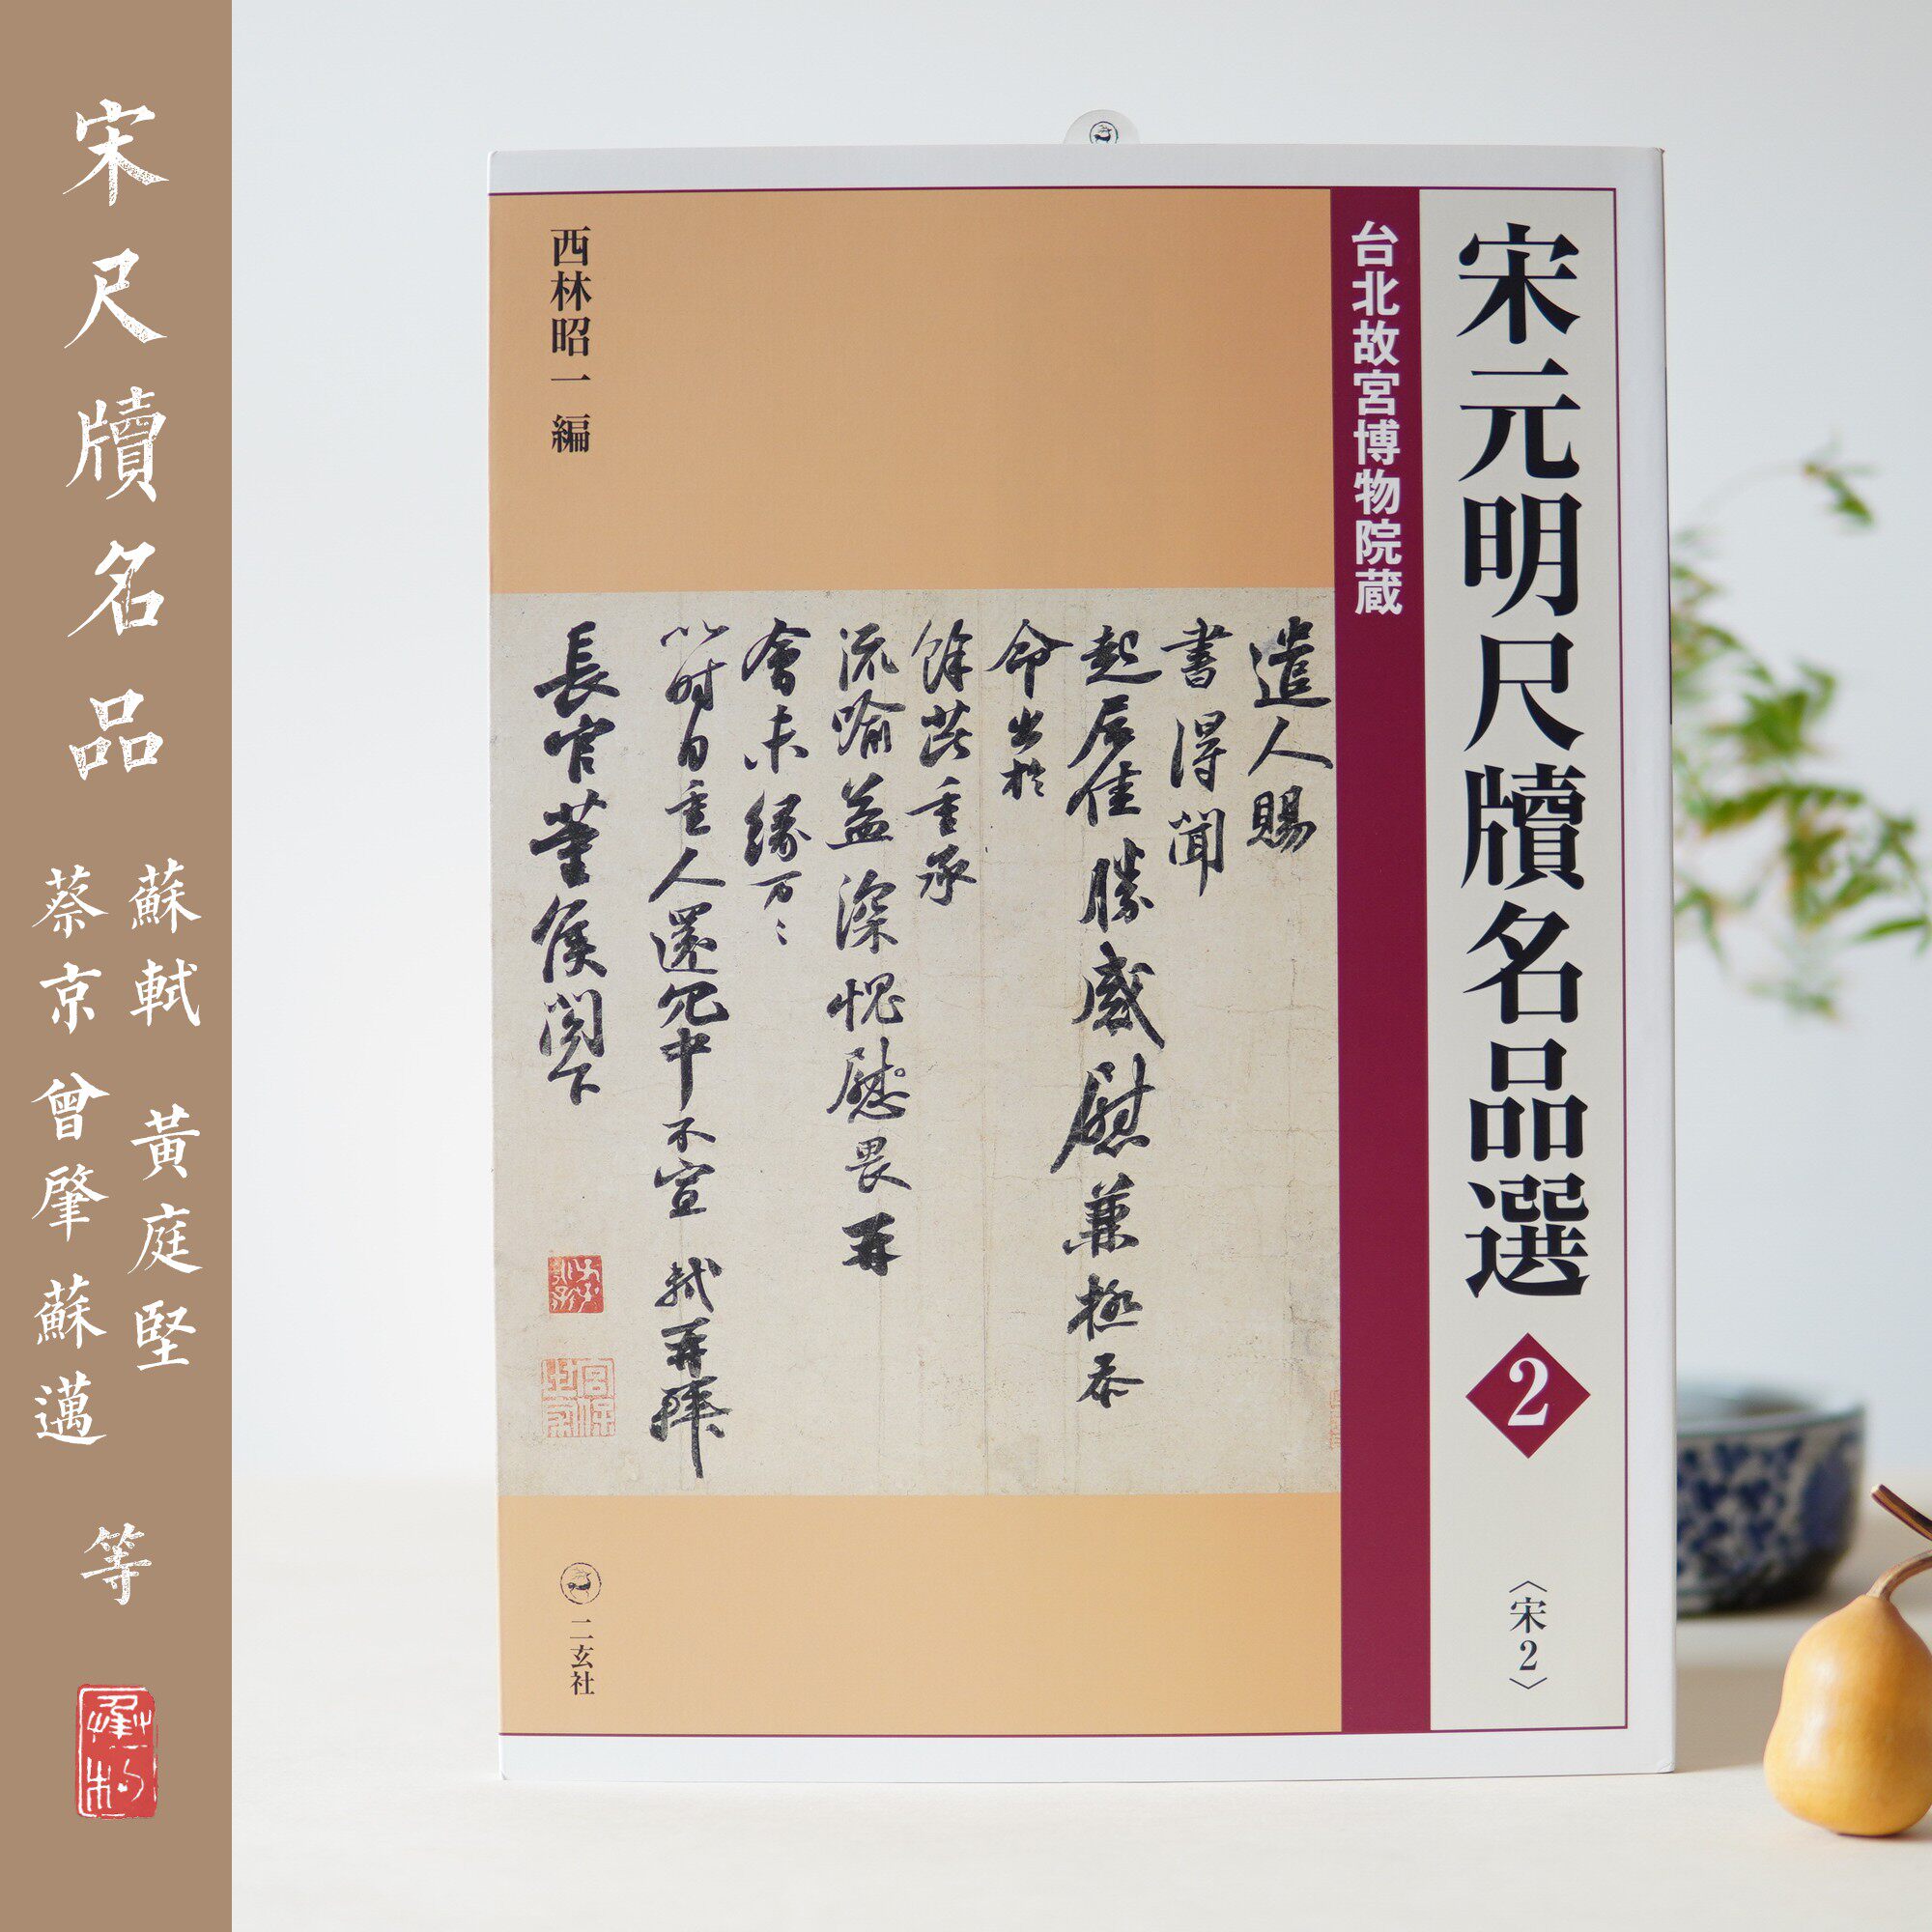 宋尺牘名品
蘇軾 黃庭堅
蔡京 曾肇 蘇邁
等
宋元明尺牘名品選 2
〈宋2〉
台北故宮博物院蔵
西林昭一 編
遣人賜
書得聞
起居佳勝感慰兼極忝
命出於
餘芘重承
流喻益深愧慰畏再
會未緣万〻
以时自重人還冗中不宣 軾再拜
長官董侯閣下
宮保世家
二玄社